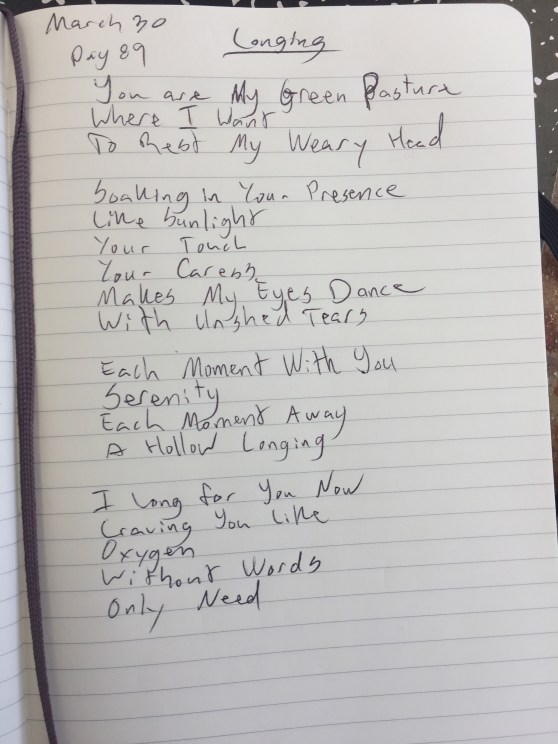 March 30
Day 89
Longing
You are My Green Pasture
Where I Want
To Rest My Weary Head
Soaking in Your Presence
Like Sunlight
Your Touch
Your Caress
Makes My Eyes Dance
With Unshed Tears
Each Moment With You
Serenity
Each Moment Away
A Hollow Longing
I Long for You Now
Craving You Like
Oxygen
Without Words
Only Need